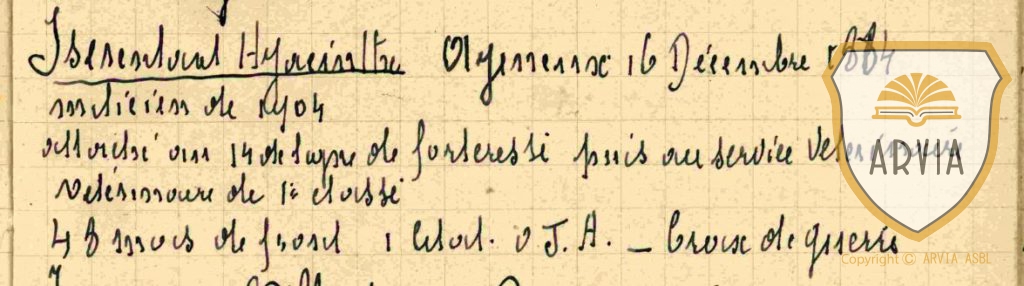 Iserentant Hyacinthe Aywaille 16 Décembre 1884
milicien de 1904
attaché au 14 de ligne de forteresse puis au service Vétérinaire
vétérinaire de 1e classe
48 mois de front 1 Citat. O J. A. — Croix de guerre
ARVIA
Copyright © ARVIA ASBL